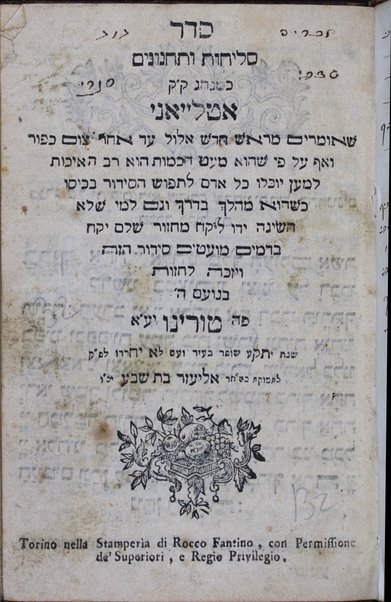 סדר
סליחות ותחנונים
כמנהג ק״ק
אטלייאני
שאומרים מראש חדש אלול עד אחר צום כפור
ואף על פי שהוא מעט הכמות הוא רב האיכות
למען יוכלו כל אדם לתפוש הסידור בכיסו
כשהוא מהלך בדרך וגם למי שלא
השיגה ידו ליקח מחזור שלם יקח
בדמים מועטים סידור הזה
ויזכה לחזות
בנועם ה׳
פה טורינו יע״א
שנת יתקע שופר בעיר ועם לא יחרדו לפ״ק
אליעזר בת שבע
132
Torino nella Stamperia di Rocco Fantino, con Permissione
de' Superiori, e Regio Privilegio.